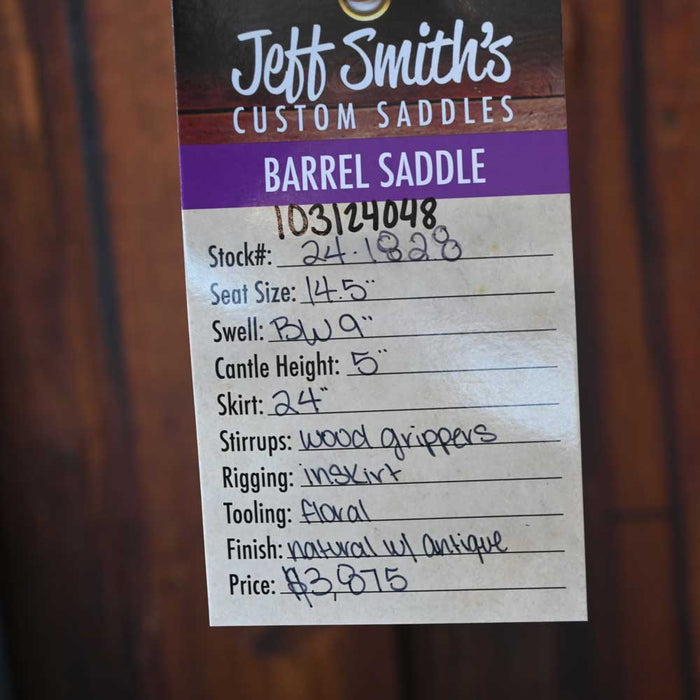 Jeff Smith's
CUSTOM SADDLES
BARREL SADDLE
103124048
Stock#: 24-1828
Seat Size: 14.5"
Swell: BW 9"
Cantle Height: 5"
Skirt: 24"
Stirrups: wood grippers
Rigging: inskirt
Tooling: floral
Finish: natural w/ antique
Price: $3,875